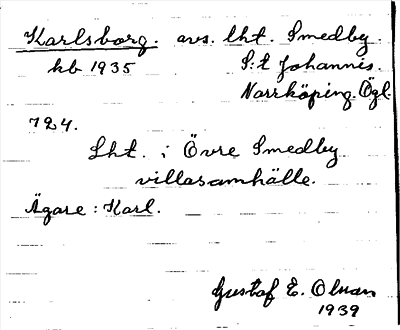 Karlsborg. avs. lht. Smedby.
kb 1935 S:t Johannis.
Norrköping. Ögl.
724.
Lht. i Övre Smedby
villasamhälle.
Ägare: Karl.
Gustaf E. Olsson
1939